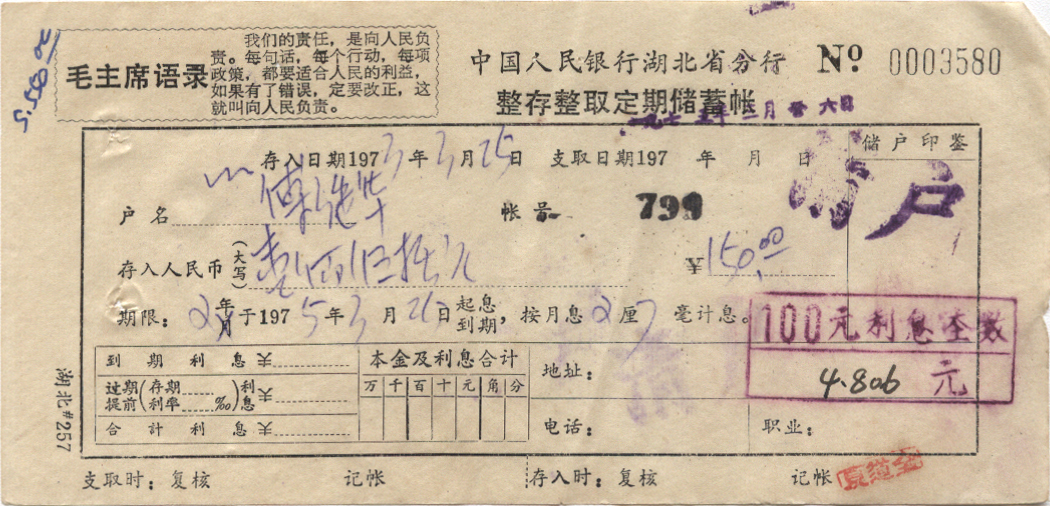 5.550.00
毛主席语录
我们的责任，是向人民负
责。每句话，每个行动，每项
政策，都要适合人民的利益，
如果有了错误，定要改正，这
就叫向人民负责。
中国人民银行湖北省分行 № 0003580
整存整取定期储蓄帐
月廿六日
存入日期197 3 年 3 月 25 日 支取日期197 年 月 日 储户印鉴
户名 帐号 799
户
存入人民币（大写） ¥150.00
期限： 2 年/月 于197 5 年 3 月 26 日 起息/到期，按月息 2 厘 7 毫计息。
100元利息查数
4.806 元
到期利息 ¥ 本金及利息合计 地址：
万 千 百 十 元 角 分
过期（存期 利
提前（利率 ‰）息 ¥
合计利息 ¥ 电话： 职业：
湖北#257
支取时：复核 记帐 存入时：复核 记帐